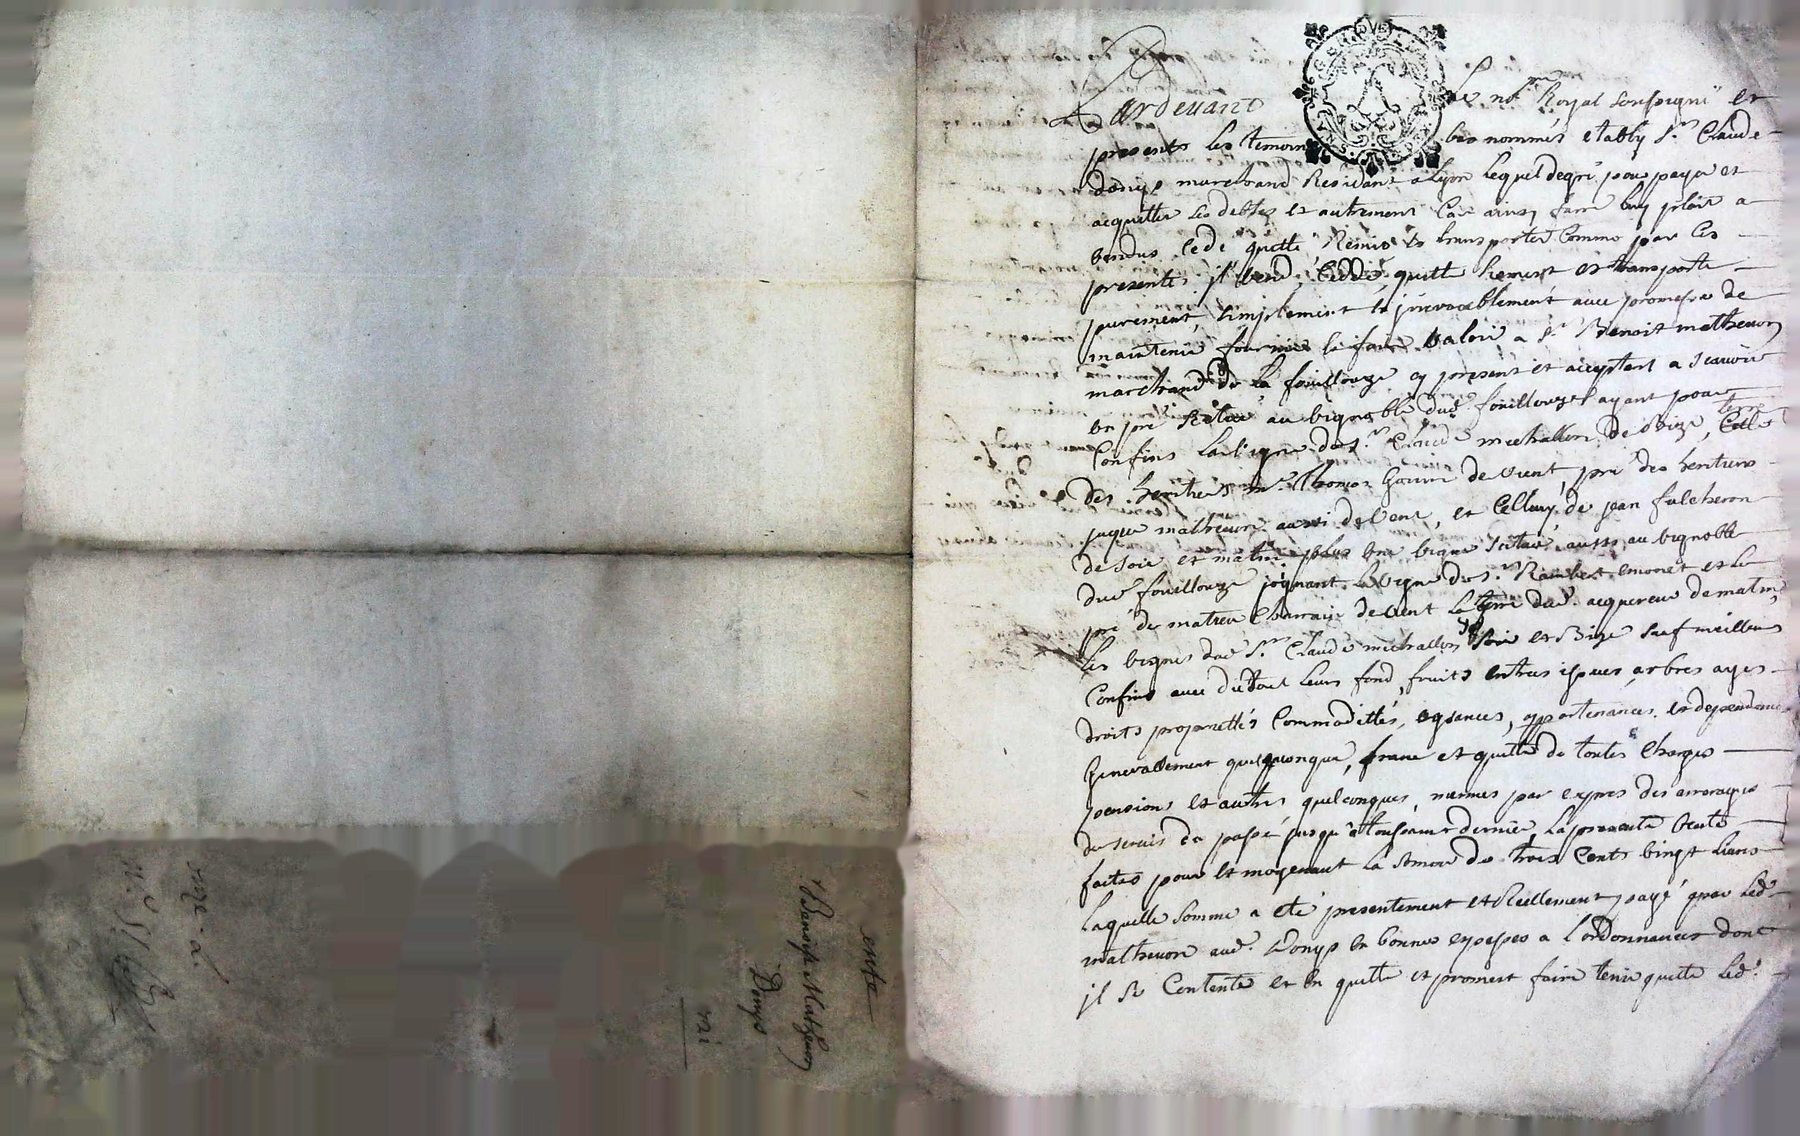 Pardevant Le not.re Royal soussigné et
presents les temoins bas nommés etably S.r Claude
donys marchand Residant a Lyon Lequel degré pour payer et
acquitter ses debtes et autrement Car ainsy faire luy plait a
vendus cede quitté Remis et transporté Comme par Ces
presentes jl vend, Cedde, quitte Remest et transporte
purement, simplement et jrrevocablement avec promesse de
maintenir fournir et faire valoir a S.r Benoit matheuon
marchand de La fouillouze cy present et acceptant a scauoir
un pré scitué au vignoble dud. fouillouze ayant pour
Confins La vigne du S.r Claude michallon de bize, Celle
des heritiers m.re Thomas de vent, pré des heritiers
jaque matheuon aussi de vent, et Celluy de jean fulcheron
de soir et matin plus une vigne scituée aussi au vignoble
dud fouillouze joignant La vigne du S.r Rambert emonet et le
pré de matieu Charrain de vent La terre dud. acquereur de matin,
Les vignes dud S.r Claude michallon de soir et Bize sauf meilleurs
Confins avec du tout Leurs fond, fruits entrees issues arbres
droits proprietés Commodittés, aysances, appartenances et dependances
Generallement quelconque, franc et quitte de toutes Charges
pensions et autres quelconques, mesmes par expres des arrerages
de servis du passé jusqu'a toussaint dernier, La presente vente
faites pour et moyenant La somme de trois Cents vingt Livres
Laquelle somme a eté presentement et Reellement payé par Led.
matheuon aud. donys en bonnes especes a L'ordonnance dont
jl se Contente et en quitte et promest faire tenir quitte Led.
ente
Benoist Matheuon
Donys